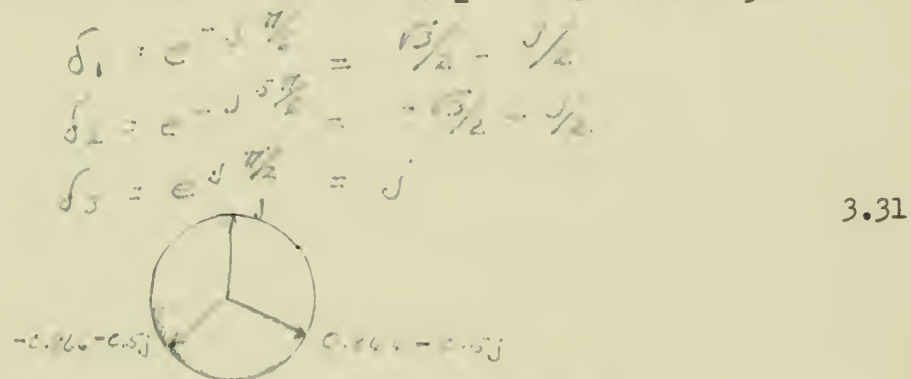 δ₁ = e^{-j π/6} = √3/2 - j/2
δ₂ = e^{-j 5π/6} = -√3/2 - j/2
δ₃ = e^{j π/2} = j
3.31
j
-0.866-0.5j 0.866-0.5j